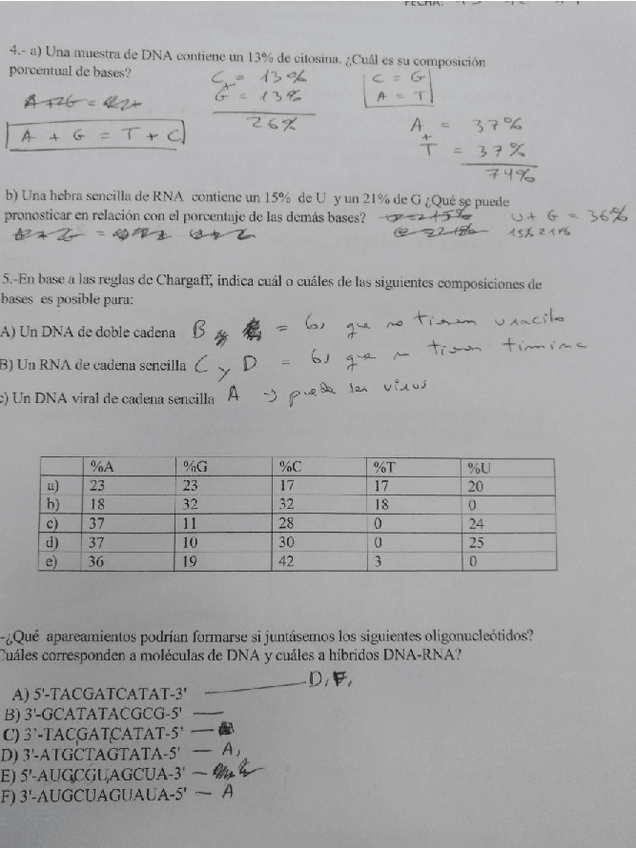 FECHA:
4.- a) Una muestra de DNA contiene un 13% de citosina. ¿Cuál es su composición
porcentual de bases?
C = 13%
+
G = 13%
26%
C = G
A = T
A + G = T + C
A = 37%
+
T = 37%
74%
b) Una hebra sencilla de RNA contiene un 15% de U y un 21% de G ¿Qué se puede
pronosticar en relación con el porcentaje de las demás bases?
U + G = 36%
15% 21%
5.-En base a las reglas de Chargaff, indica cuál o cuáles de las siguientes composiciones de
bases es posible para:
A) Un DNA de doble cadena B = los que no tienen uracilo
B) Un RNA de cadena sencilla C y D = los que no tienen timina
c) Un DNA viral de cadena sencilla A → puede ser virus
%A %G %C %T %U
a) 23 23 17 17 20
b) 18 32 32 18 0
c) 37 11 28 0 24
d) 37 10 30 0 25
e) 36 19 42 3 0
-¿Qué apareamientos podrían formarse si juntásemos los siguientes oligonucleótidos?
Cuáles corresponden a moléculas de DNA y cuáles a híbridos DNA-RNA?
A) 5'-TACGATCATAT-3' — D, F,
B) 3'-GCATATACGCG-5' —
C) 3'-TACGATCATAT-5' —
D) 3'-ATGCTAGTATA-5' — A,
E) 5'-AUGCGUAGCUA-3' —
F) 3'-AUGCUAGUAUA-5' — A